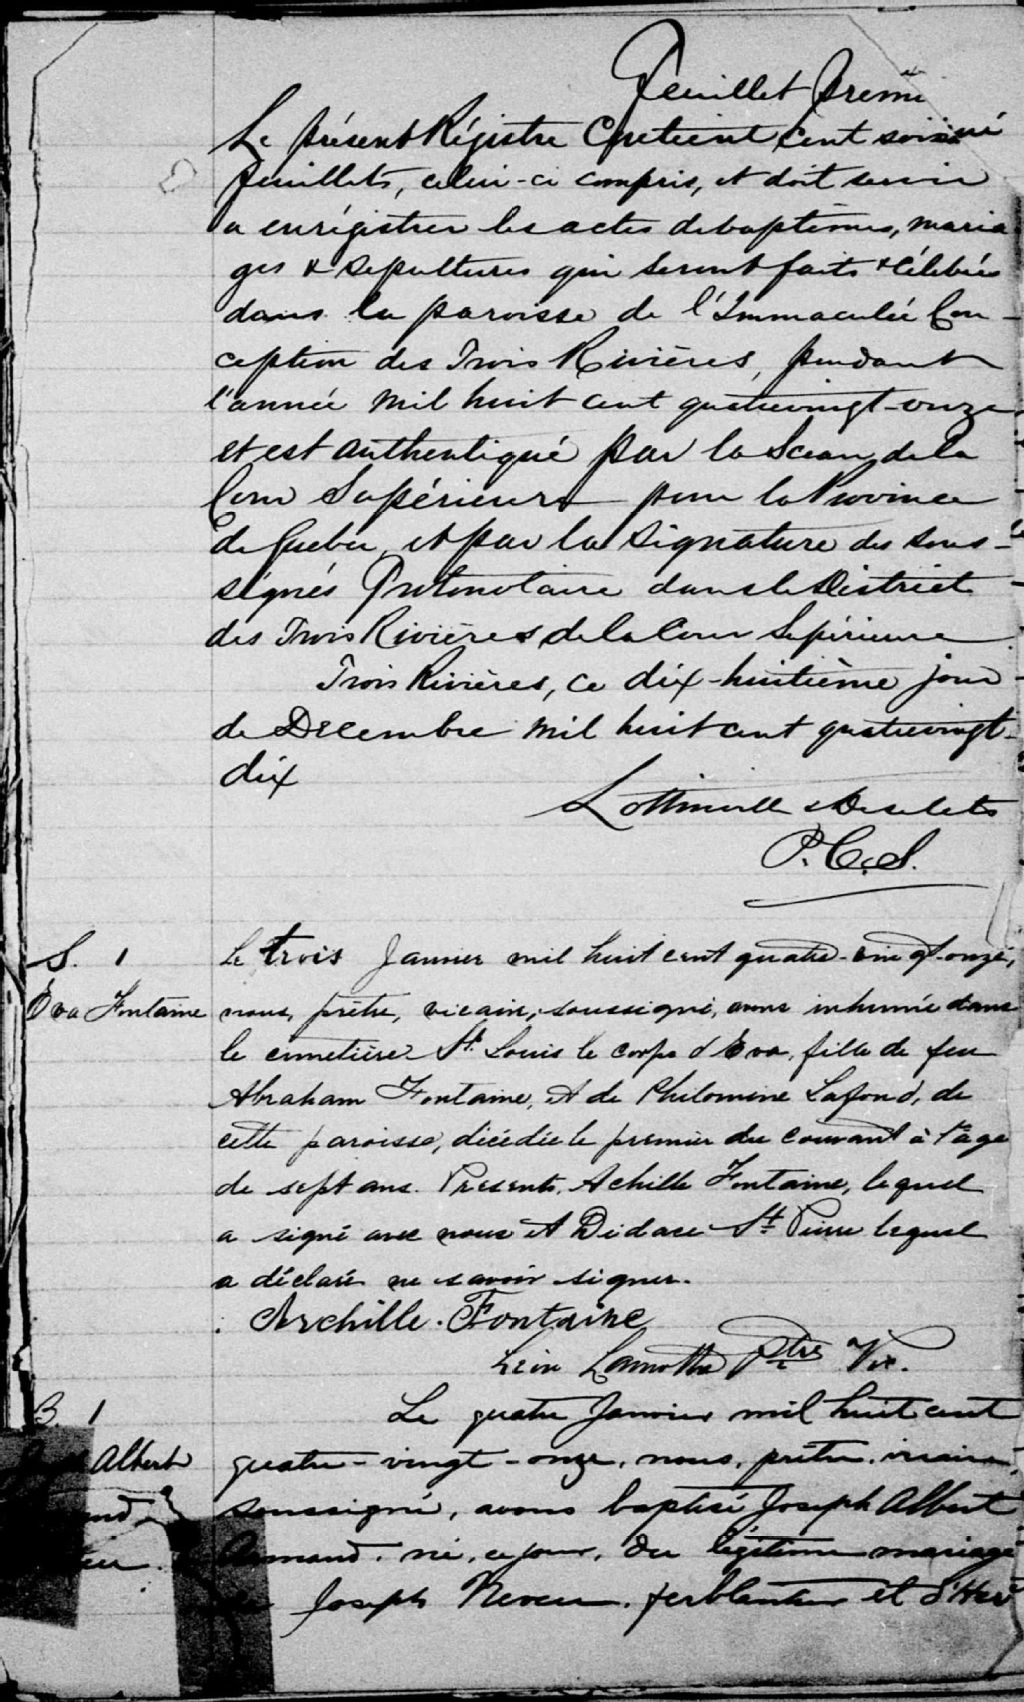 Feuillet Premi
Le présent Régistre Contient Cent soix
feuillets, celui-ci compris, et doit servir
a enrégistrer les actes de baptêmes, maria
ges & sepultures qui seront faits & célébrés
dans la paroisse de l'Immaculée Con-
ception des Trois Rivières, pendant
l'année mil huit cent quatrevingt-onze
et est authentiqué par le Sceau de la
Cour Supérieure pour la Province
de Quebec, et par la signature des sous-
signés Protonotaire dans le District
des Trois Rivières de la Cour Supérieure
Trois Rivières, ce dix-huitième jour
de Decembre mil huit cent quatrevingt-
dix
Lottinville & Desilets
P.C.S.
S. 1
Eva Fontaine
Le trois Janvier mil huit cent quatre-vingt-onze,
nous, prêtre, vicaire, soussigné, avons inhumé dans
le cimetière St. Louis le corps d'Eva, fille de feu
Abraham Fontaine, et de Philomène Lafond, de
cette paroisse, décédée le premier du courant à l'age
de sept ans. Présents, Achille Fontaine, lequel
a signé avec nous et Didace St. Pierre lequel
a déclaré ne savoir signer.
Archille Fontaine
Lamothe Ptre Vic.
B. 1
Albert
Le quatre Janvier mil huit cent
quatre-vingt-onze, nous, prêtre, vicaire,
soussigné, avons baptisé Joseph Albert
Armand, né, ce jour, du légitime mariage
Joseph Neveu, ferblantier et d'